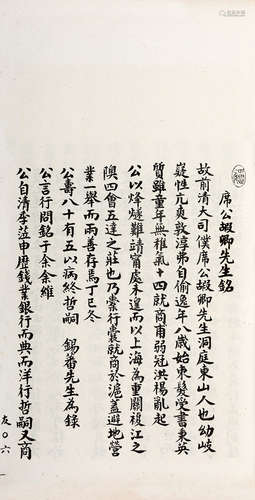 席公嘏卿先生銘
故前清大司僕席公嘏卿先生洞庭東山人也幼岐
嶷性亢爽敦淳弗自偷逸年八歲始束髮受書東英
質雖童年無稚氣十四就商甫弱冠洪楊亂起
公以烽燧難靖甯處未遑而以上海為重關複江之
隩四會五達之莊也乃裳行裳就商於滬蓋避地營
業一舉而兩善存焉丁巳冬
公壽八十有五以病終哲嗣 錫蕃先生為錄
公言行問銘于余余維
公自清李蒞申歷錢業銀行而典而洋行哲嗣又商
友〇六